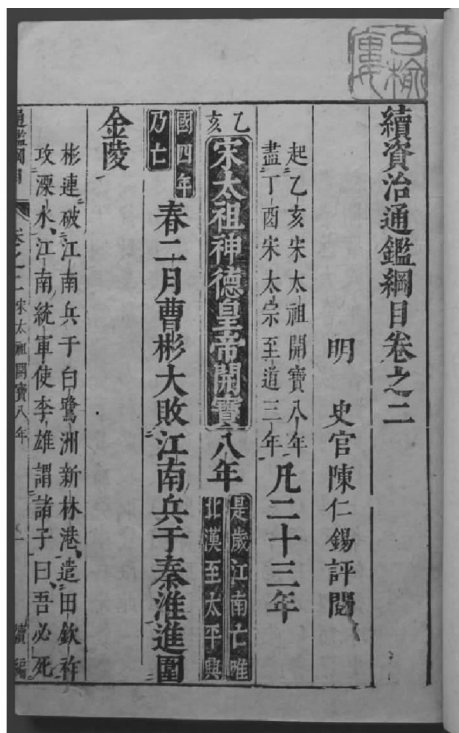 續資治通鑑綱目卷之二
明　史官陳仁錫評閱
起乙亥宋太祖開寶八年
盡丁酉宋太宗至道三年
凡二十三年
乙亥
宋太祖神德皇帝開寶八年
是歲江南亡唯
北漢至太平興
國四年
乃亡
春二月曹彬大敗江南兵于秦淮進圍
金陵
彬連破江南兵于白鷺洲新林港遣田欽祚
攻溧水江南統軍使李雄謂諸子曰吾必死
通鑑綱目
卷之二
宋太祖開寶八年
一
續編